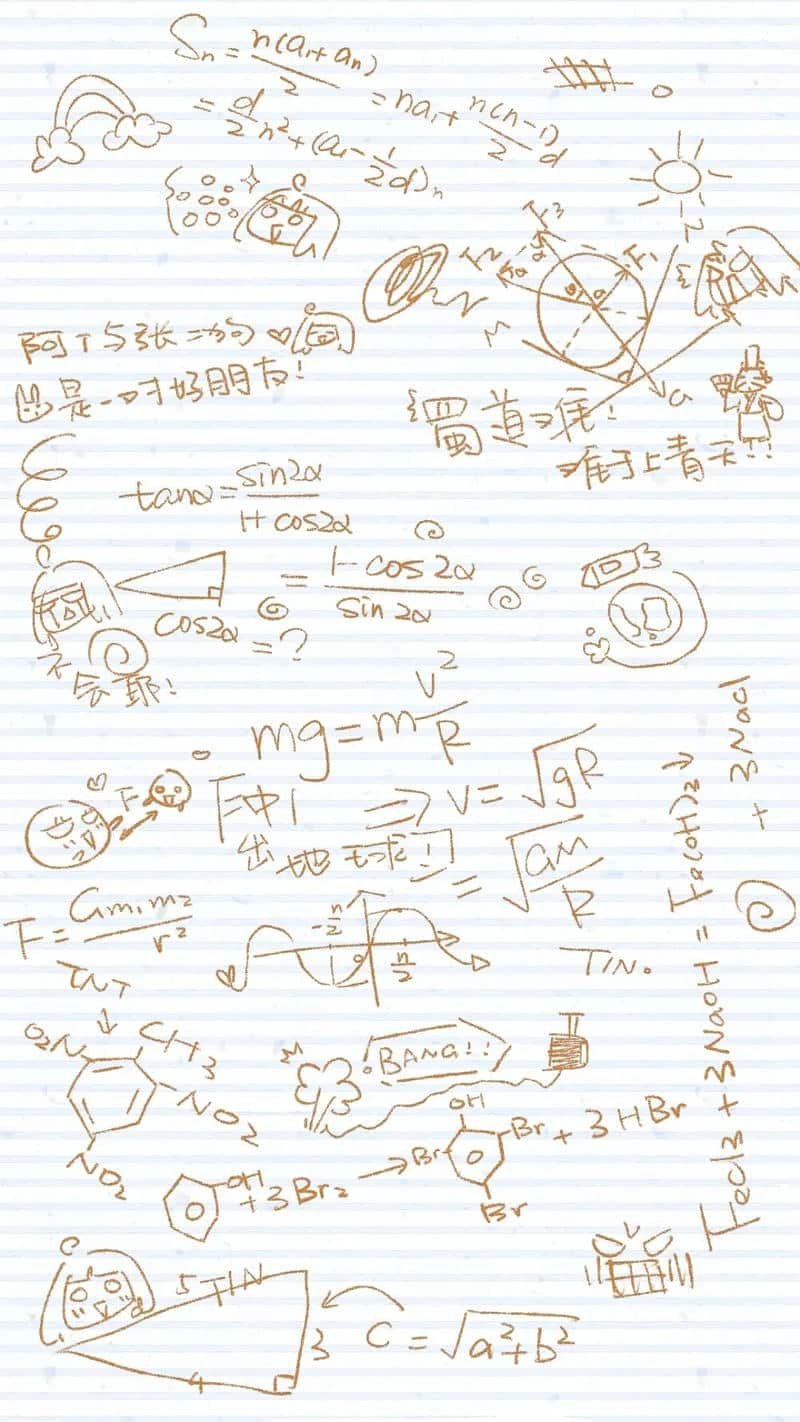 Sn = n(a₁+an)/2 = na₁ + n(n-1)/2 d
= d/2 n² + (a₁ - 1/2 d)n
F₃
F₂
F₁
M
N
G
阿T与张二狗
是一对好朋友!
蜀道难!
难于上青天!!
tanα = sin2α/1+cos2α
= 1-cos2α/sin2α
cos2α = ?
不会耶!
mg = m v²/R
F
冲!
出地球!
⇒ v = √gR
= √GM/R
F = Gm₁m₂/r²
-π/2
0
π/2
TIN.
TNT
↓
O₂N
CH3
NO2
NO2
BANG!!
OH
+ 3Br₂ →
OH
Br
Br
Br
+ 3HBr
Fecl3 + 3NaOH = Fe(OH)₂↓ + 3Nacl
5 TIN
3
4
C = √a²+b²